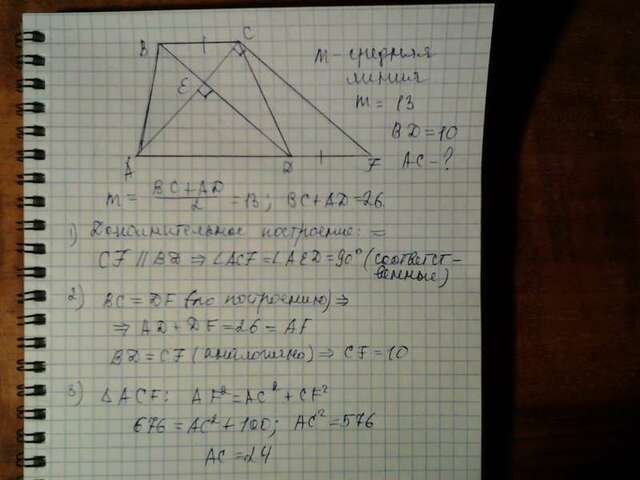 B C
E
A D F
m - средняя
линия
m = 13
BD = 10
AC - ?
m = BC + AD / 2 = 13; BC + AD = 26.
1) Дополнительное построение: =
CF || BD ⇒ ∠ACF = ∠AED = 90° (соответст-
венные)
2) BC = DF (по построению) ⇒
⇒ AD + DF = 26 = AF
BD = CF (аналогично) ⇒ CF = 10
3) △ACF: AF² = AC² + CF²
676 = AC² + 100; AC² = 576
AC = 24